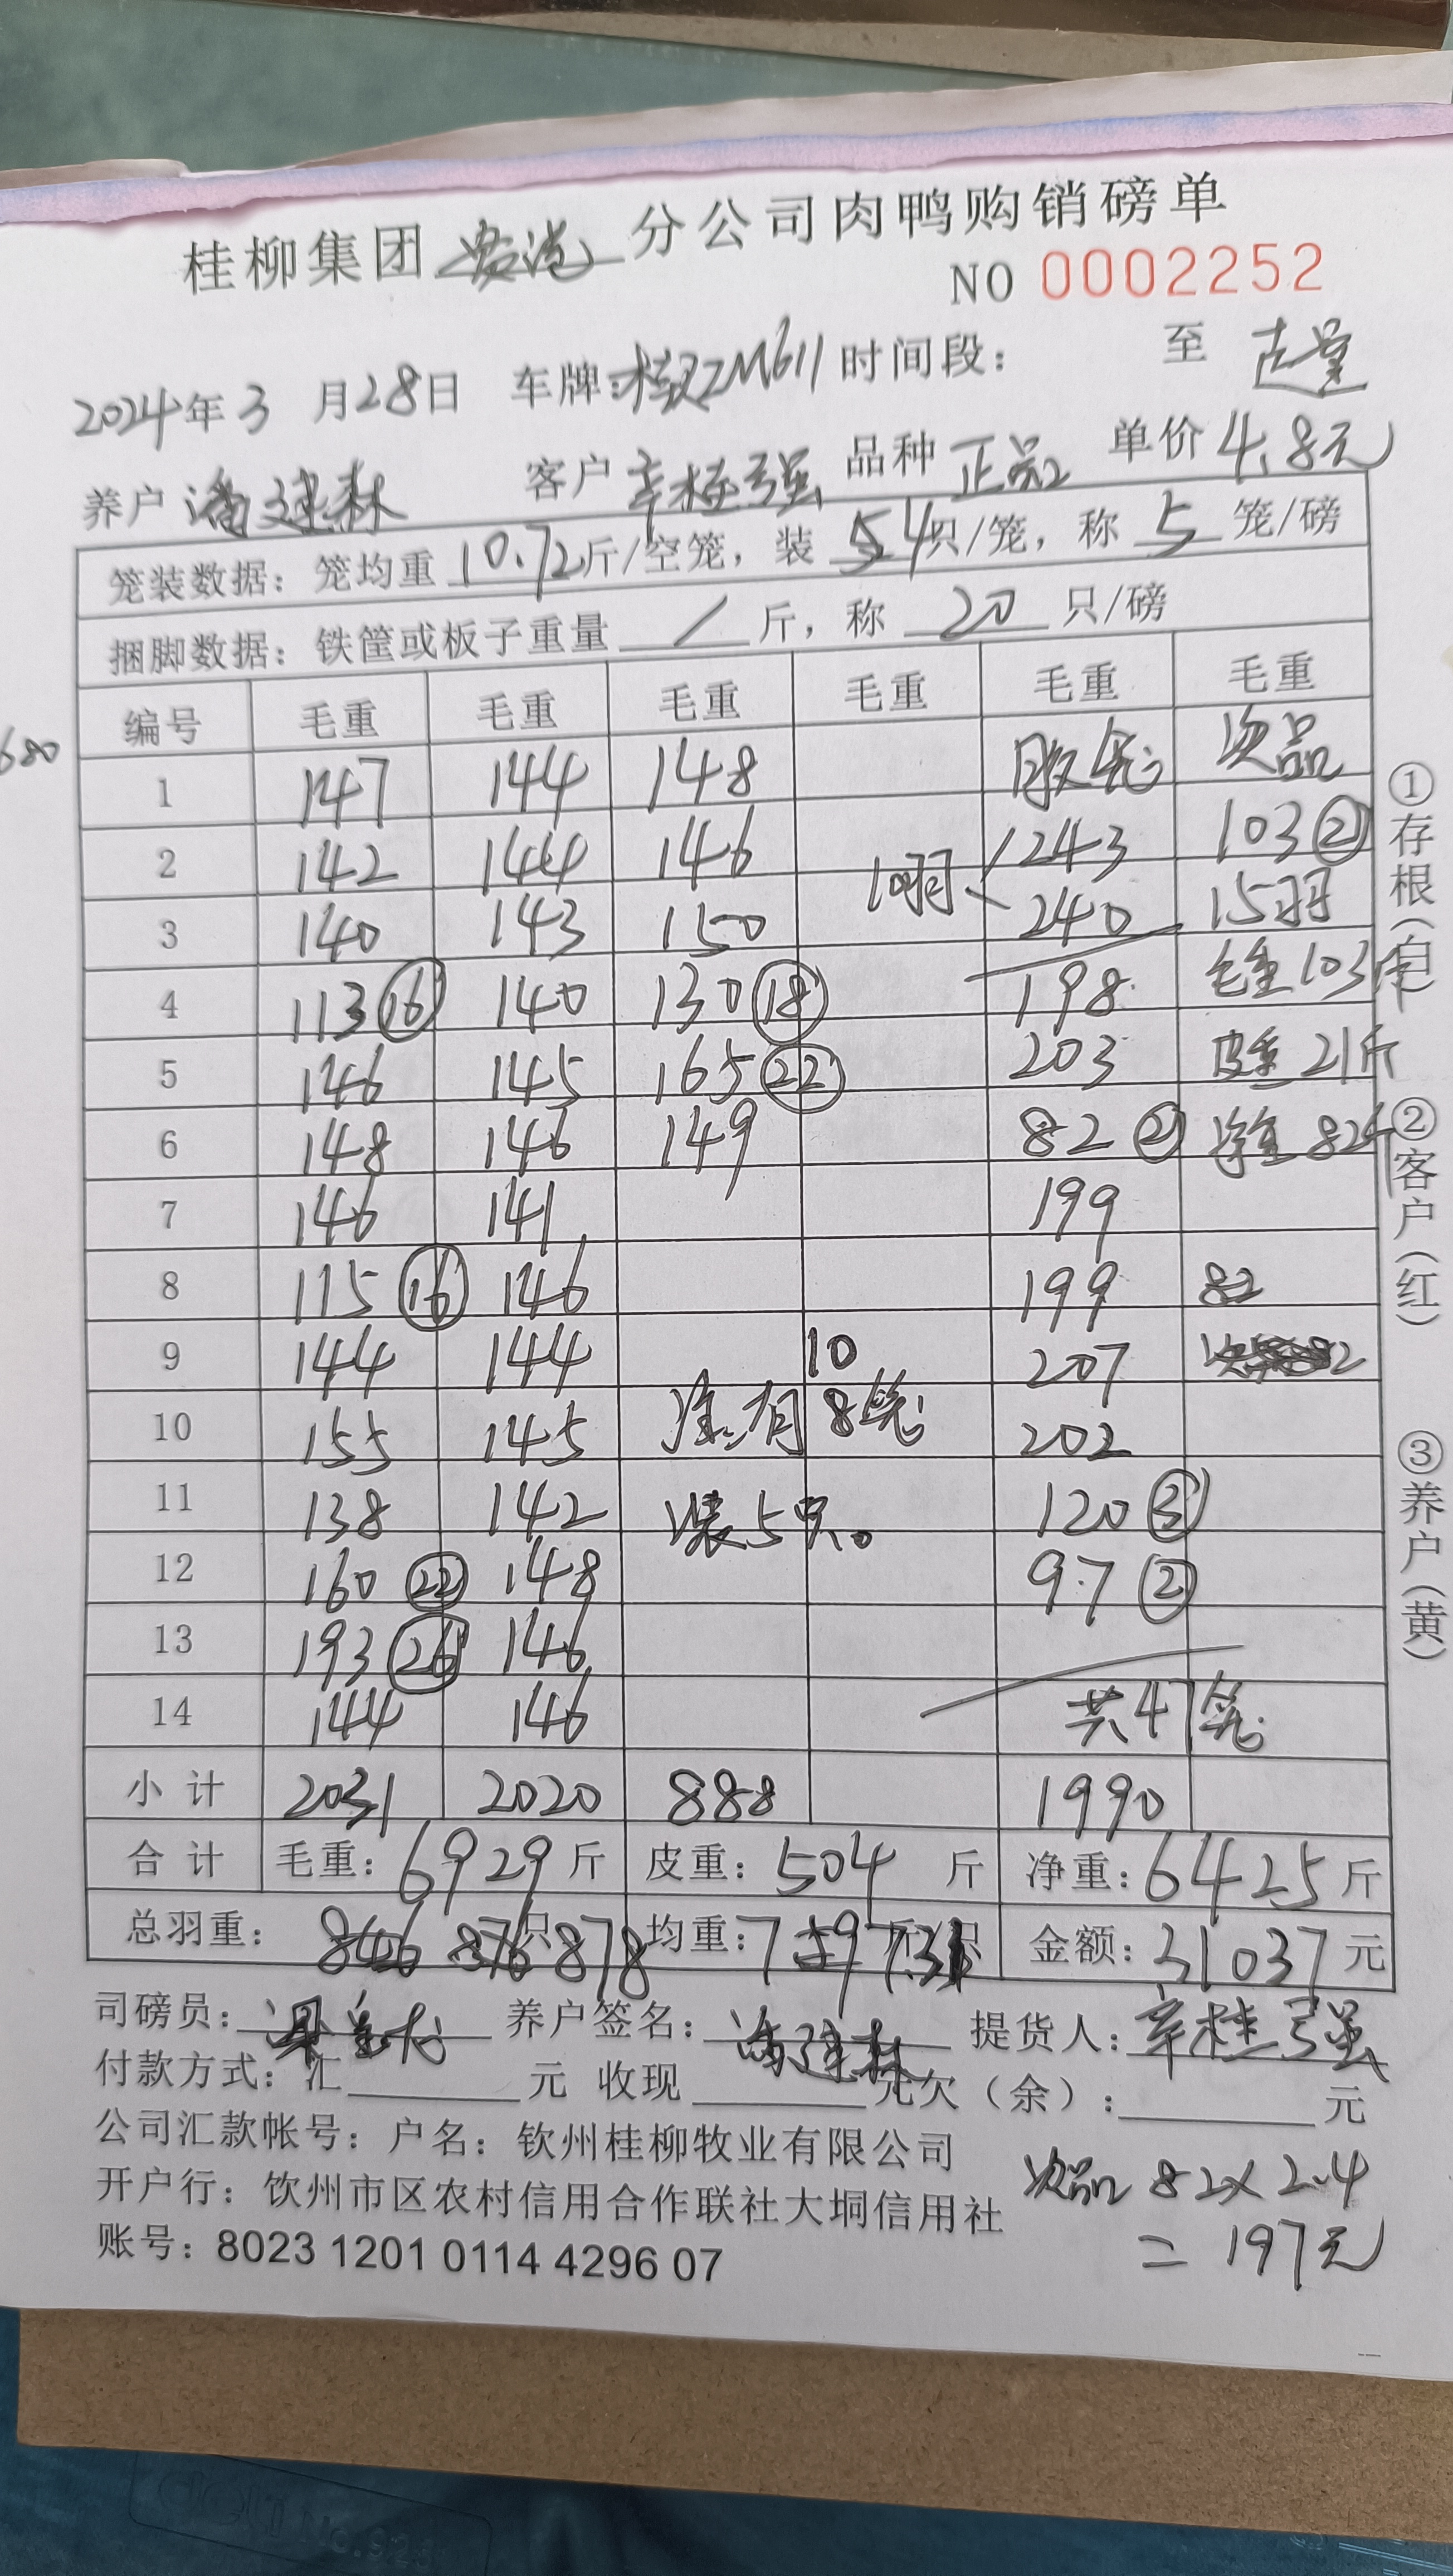 桂柳集团 分公司肉鸭购销磅单
NO 0002252
2024年3月28日 车牌:桂 ZM611 时间段: 至
养户 潘建森 客户 辛桂强 品种 正品 单价 4.8元
笼装数据:笼均重 10.72斤/空笼,装 54只/笼,称 5 笼/磅
捆脚数据:铁筐或板子重量 / 斤,称 20 只/磅
编号 毛重 毛重 毛重 毛重 毛重 毛重
680
1 147 144 148 胶笼 次品
2 142 144 146 243 103②
3 140 143 150 240 15羽
4 113⑯ 140 130⑱ 198 毛重103斤
5 146 145 165㉒ 203 皮重21斤
6 148 146 149 82② 净重82斤
7 146 141 199
8 115⑯ 146 199 82
9 144 144 10 207
10 155 145 净有8笼 202
11 138 142 装5只。 120
12 160㉒ 148 97②
13 193㉖ 146
14 144 146 共47笼
小计 2031 2020 888 1990
合计 毛重:6929斤 皮重:504 斤 净重:6425斤
总羽重: 846 876 878 只 均重: 金额:31037元
司磅员: 养户签名:潘建森 提货人:辛桂强
付款方式:汇 元 收现 元欠(余): 元
公司汇款帐号:户名:钦州桂柳牧业有限公司
开户行:饮州市区农村信用合作联社大垌信用社
账号:8023 1201 0114 4296 07
次品 82×2.4
=197元
①存根(白) ②客户(红) ③养户(黄)